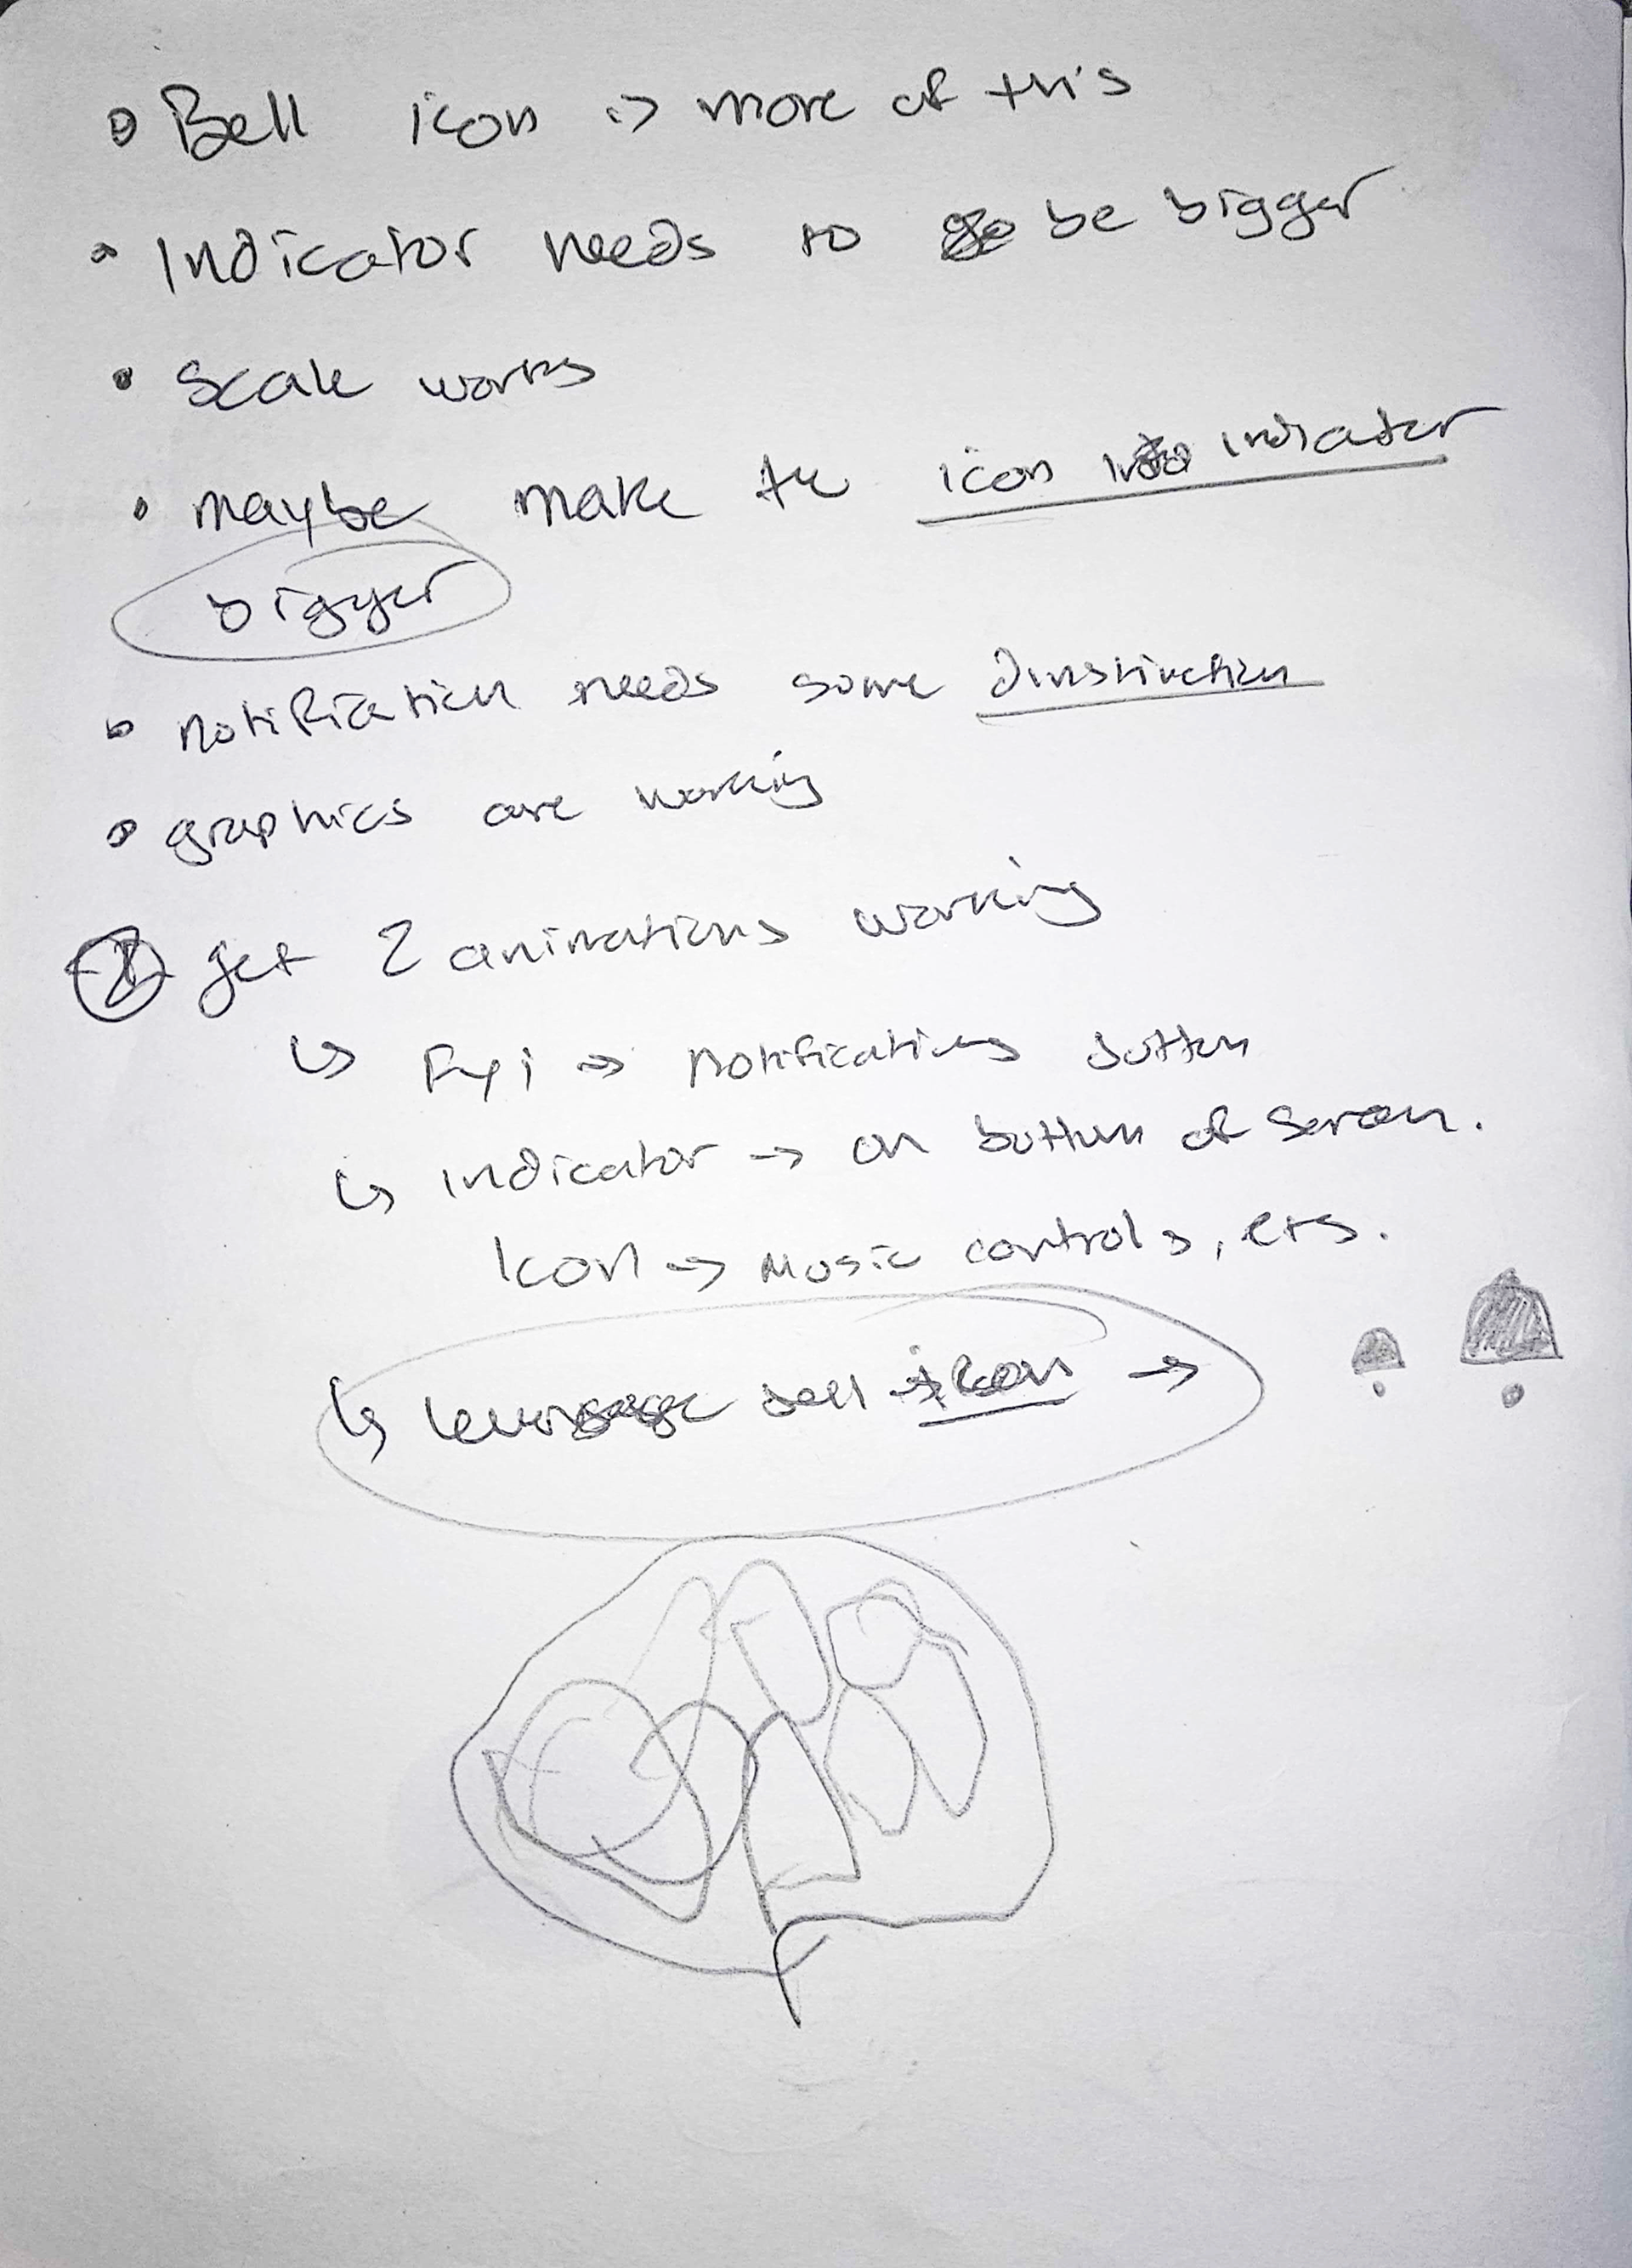 • Bell icon -> more of this
• Indicator needs to be bigger
• Scale works
• maybe make the icon into indicator
bigger
• notification needs some dinstinction
• graphics are working
get 2 animations working
↳ Fyi → notifications button
↳ indicator → on bottom of screen.
Icon → Music controls, etc.
↳ leverage bell icon →